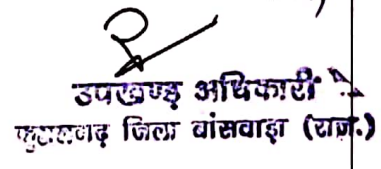 उपखण्ड अधिकारी
कुशलगढ़ जिला बांसवाड़ा (राज.)